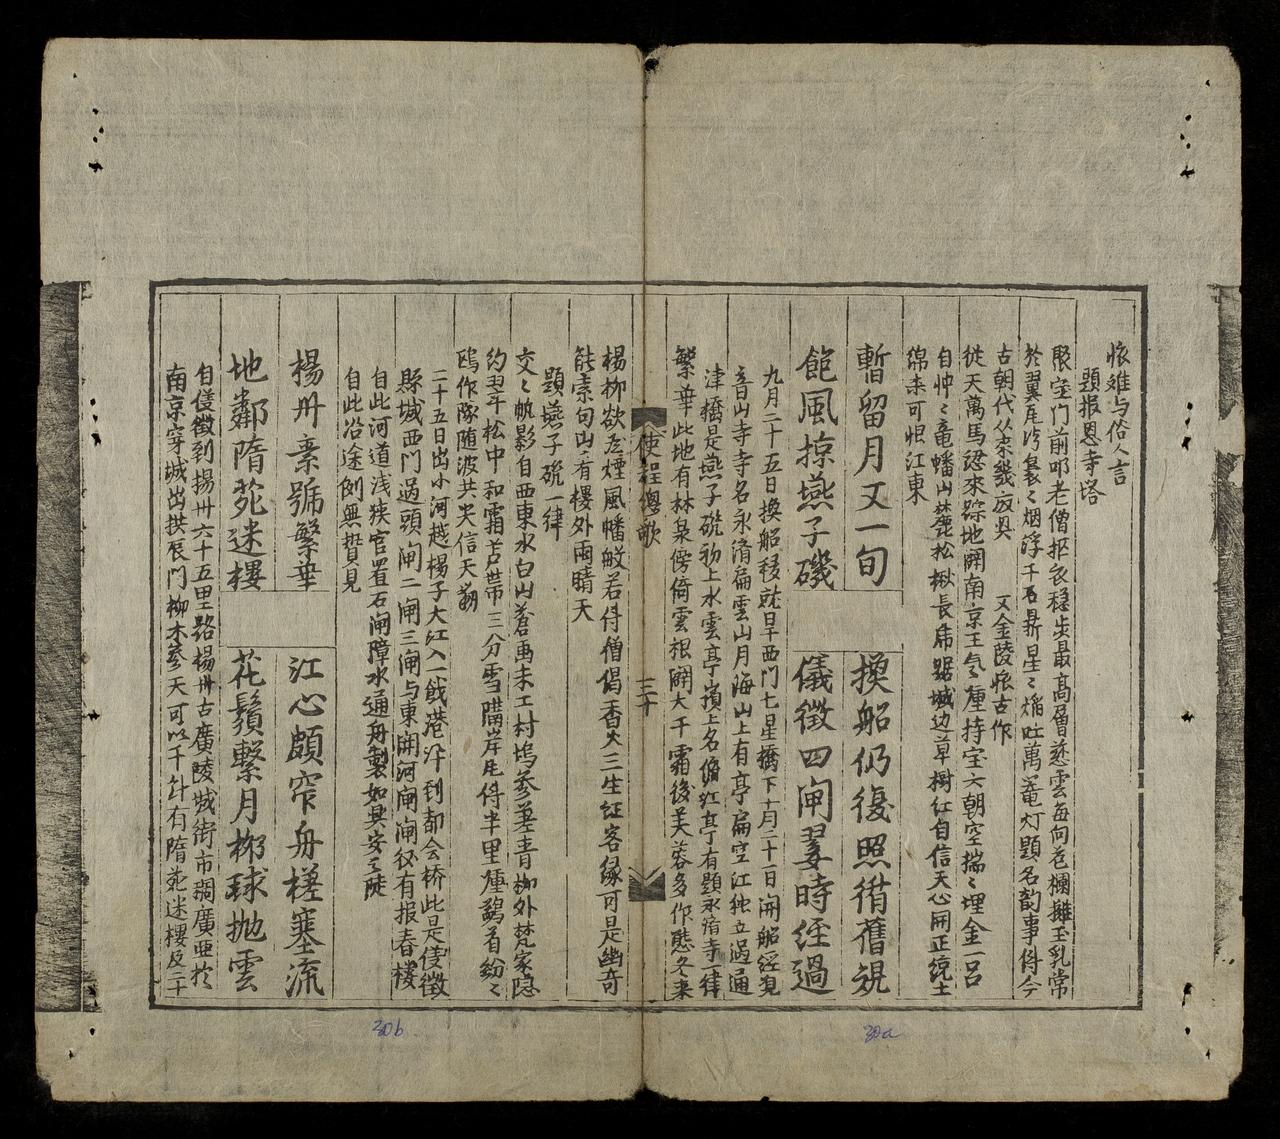 恢难与俗人言
題报恩寺塔
眼空门前叩老僧抠衣稳步最高層慈雲每向危欄擁玉乳常
於翼瓦泠裊裊烟浮千古鼎星星焰吐萬竜灯題名韵事侍今
古朝代从来幾癈兴 又金陵懷古作
従天萬馬認來踪地闢南京王气鍾持宝六朝空揣揣埋金一吕
自忡忡竜蟠山麓松楸長虎踞城边草樹红自信天心開正統士
綿未可恨江東
暫留月又一旬 換船仍復照循舊規
飽風掠燕子磯 儀徵四闸霎時经過
九月二十五日换船移就旱西門七星橋下十月二十一日開船经見
音山寺寺名永濟扁雲山月海山上有亭扁空江独立過通
津橋是燕子磯初上水雲亭嶺上名俯江亭有題永濟寺一律
繁華此地有林泉傍倚雲根闢大千霜後芙蓉多作態冬来
使程總歌
三十
楊柳欲为煙風幡敲若侍僧偈香火三生红客缘可是幽奇
能索句山肴樓外雨晴天
題燕子磯一律
交交帆影自西東水白山蒼画未工村塢参差青柳外梵家隐
约翠松中和霜苦帶三分雪隣岸瓦侍半里煙鷀看紛紛
鴎作隊随波共失信天翁
二十五日出小河越楊子大江入一餓港汴到都会桥此是侵徵
縣城西門過頭闸二闸三闸与東關河闸闸欲有报春樓
自此河道浅狭官置石闸障水通舟製如具安王陡
自此沿途倒無贊見
楊州素號繁華 江心頗窄舟槎塞流
地鄰隋苑迷樓 花鬚繫月柳毬抛雲
自儀徵到揚州六十五里路楊州古廣陵城街市稠廣亜於
南京穿城出拱辰门柳木参天可以千计有隋苑迷樓及二十
30b
30a